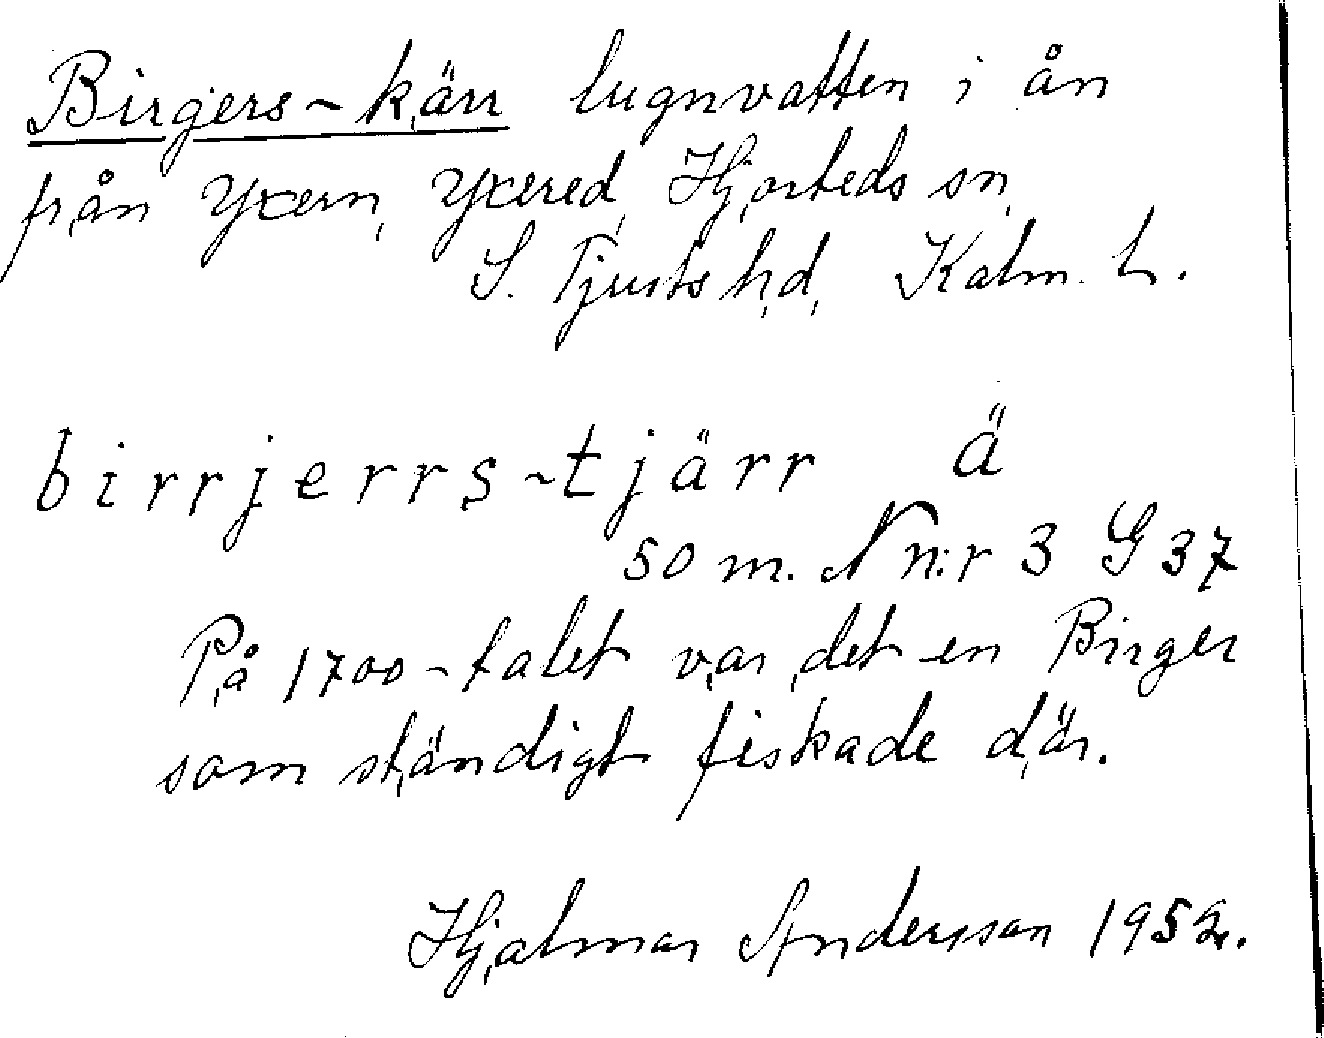 Birgers-kärr lugnvatten i ån
från Yxern, Yxered, Hjorteds sn,
S. Tjusts hd, Kalm. L.
birrjerrs-tjärr ä
50 m. N n:r 3 G 37
På 1700-talet var det en Birger
som ständigt fiskade där.
Hjalmar Andersson 1952.